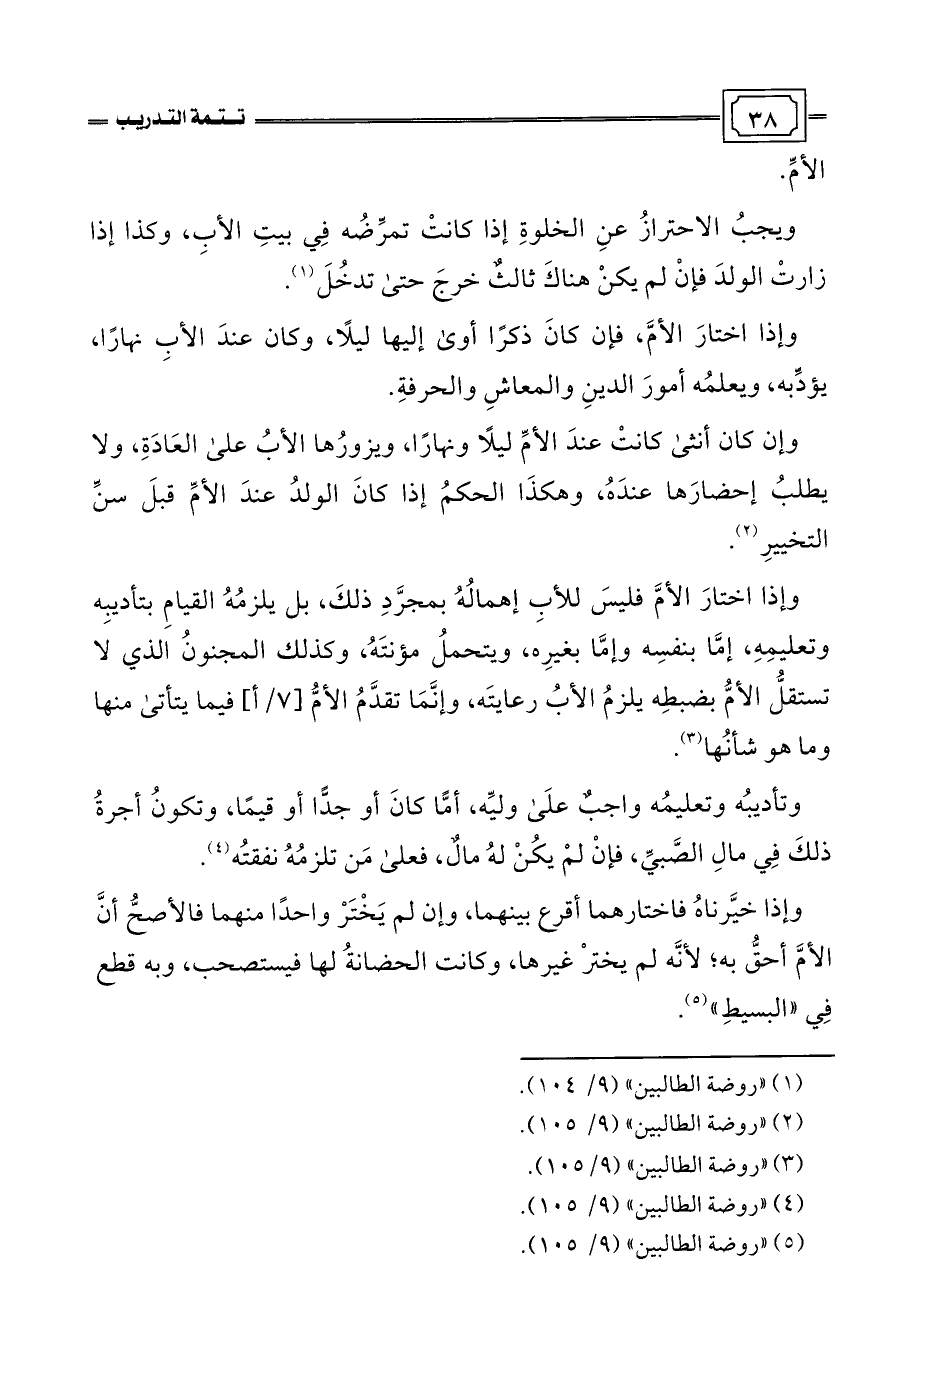 ٣٨
تـتـمة التدريب
الأمِّ.
ويجبُ الاحترازُ عنِ الخلوةِ إذا كانتْ تمرِّضُه فِي بيتِ الأبِ، وكذا إذا
زارتْ الولدَ فإنْ لم يكنْ هناكَ ثالثٌ خرجَ حتىٰ تدخُلَ(١).
وإذا اختارَ الأمَّ، فإن كانَ ذكرًا أوىٰ إليها ليلًا، وكان عندَ الأبِ نهارًا،
يؤدِّبه، ويعلمُه أمورَ الدينِ والمعاشِ والحرفةِ.
وإن كان أنثىٰ كانتْ عندَ الأمِّ ليلًا ونهارًا، ويزورُها الأبُ علىٰ العَادَةِ، ولا
يطلبُ إحضارَها عندَهُ، وهكذَا الحكمُ إذا كانَ الولدُ عندَ الأمِّ قبلَ سنِّ
التخييرِ(٢).
وإذا اختارَ الأمَّ فليسَ للأبِ إهمالُهُ بمجرَّدِ ذلكَ، بل يلزمُهُ القيام بتأديبِه
وتعليمِهِ، إمَّا بنفسِه وإمَّا بغيرِه، ويتحملُ مؤنتَهُ، وكذلك المجنونُ الذي لا
تستقلُّ الأمُّ بضبطِه يلزمُ الأبُ رعايتَه، وإنَّمَا تقدَّمُ الأمُّ [٧/ أ] فيما يتأتىٰ منها
وما هو شأنُها(٣).
وتأديبُه وتعليمُه واجبٌ علَىٰ وليِّه، أمَّا كانَ أو جدًّا أو قيمًا، وتكونُ أجرةُ
ذلكَ فِي مالِ الصَّبيِّ، فإنْ لمْ يكُنْ لهُ مالٌ، فعلىٰ مَن تلزمُهُ نفقتُه(٤).
وإذا خيَّرناهُ فاختارهما أقرع بينهما، وإن لم يَخْتَرْ واحدًا منهما فالأصحُّ أنَّ
الأمَّ أحقُّ به؛ لأنَّه لم يخترْ غيرها، وكانت الحضانةُ لها فيستصحب، وبه قطع
فِي «البسيطِ»(٥).
(١) «روضة الطالبين» (٩/ ١٠٤).
(٢) «روضة الطالبين» (٩/ ١٠٥).
(٣) «روضة الطالبين» (٩/ ١٠٥).
(٤) «روضة الطالبين» (٩/ ١٠٥).
(٥) «روضة الطالبين» (٩/ ١٠٥).